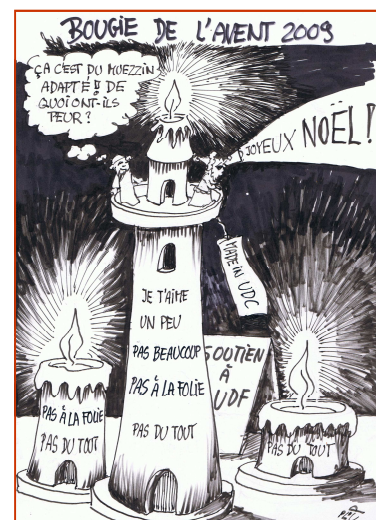 BOUGIE DE L'AVENT 2009
ÇA C'EST DU MUEZZIN
ADAPTÉ!! DE
QUOI ONT-ILS
PEUR?
JOYEUX NOËL!
MADE IN UDC
JE T'AIME
UN PEU
PAS BEAUCOUP
PAS À LA FOLIE
PAS DU TOUT
SOUTIEN
À
UDF
PAS À LA FOLIE
PAS DU TOUT
PAS DU TOUT